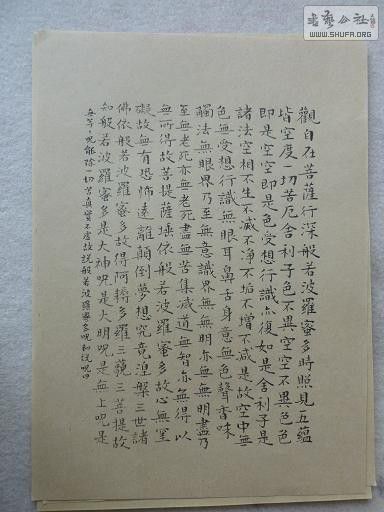 書藝公社
WWW.SHUFA.ORG
觀自在菩薩行深般若波羅蜜多時照見五蘊
皆空度一切苦厄舍利子色不異空空不異色色
即是空空即是色受想行識亦復如是舍利子是
諸法空相不生不滅不淨不垢不增不減是故空中無
色無受想行識無眼耳鼻舌身意無色聲香味
觸法無眼界乃至無意識界無無明亦無無明盡乃
至無老死亦無老死盡無苦集滅道無智亦無得以
無所得故菩提薩埵依般若波羅蜜多故心無罣
礙故無有恐怖遠離顛倒夢想究竟涅槃三世諸
佛依般若波羅蜜多故得阿耨多羅三藐三菩提故
如般若波羅蜜多是大神呪是大明呪是無上呪是
無等々呪能除一切苦真實不虛故說般若波羅蜜多呪即說呪曰